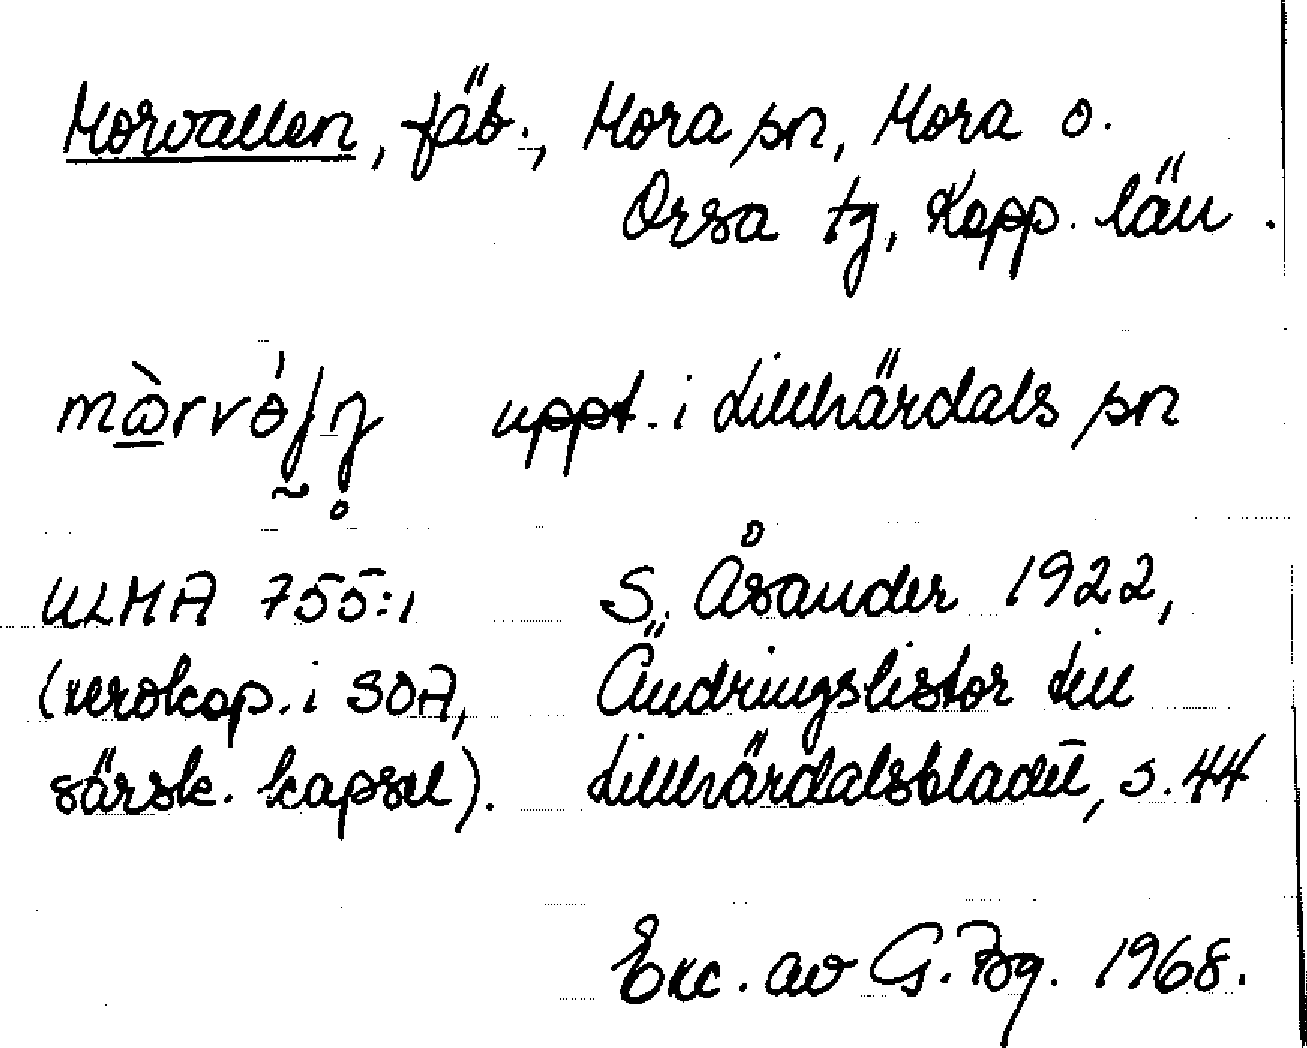 Morvallen, fäb., Mora sn, Mora o.
Orsa tg, Kopp. län.
uppt. i Lillhärdals sn
ULMA 755:1 S. Åsander 1922,
(xerokop. i SOA, Ändringslistor till
särsk. kapsel). Lillhärdalsbladet, s. 44
Exc. av G. Bg. 1968.